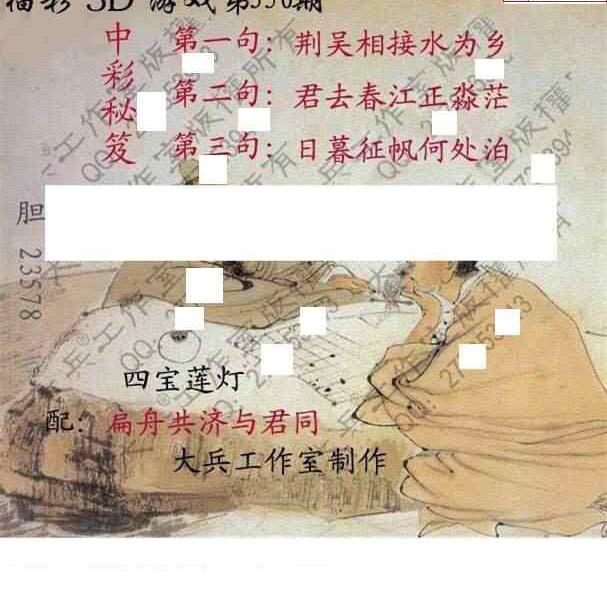 福彩 3D 游戏 第330期
中彩秘笈
第一句：荆吴相接水为乡
第二句：君去春江正淼茫
第三句：日暮征帆何处泊
胆
23578
四宝莲灯
配：扁舟共济与君同
大兵工作室制作